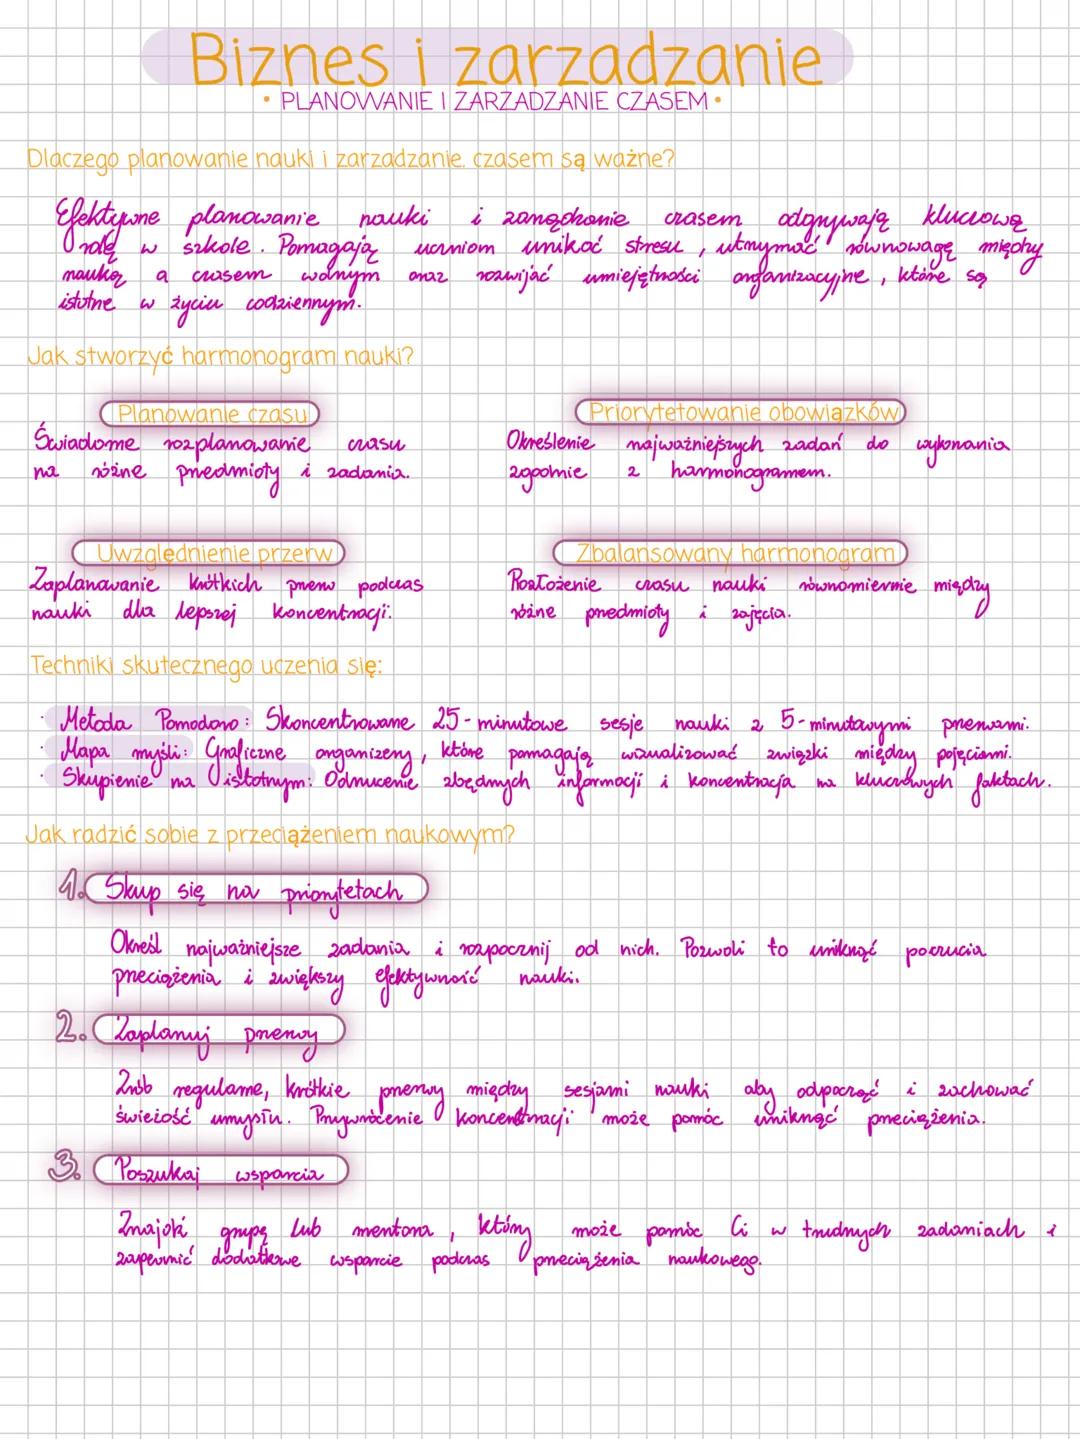 Biznes i zarzadzanie
• PLANOWANIE I ZARZADZANIE CZASEM •
Dlaczego planowanie nauki i zarzadzanie. czasem są ważne?
Efektywne planowanie nauki i zarządzanie czasem odgrywają kluczową
rolę w szkole. Pomagają uczniom unikać stresu, utrzymać równowagę między
nauką a czasem wolnym oraz rozwijać umiejętności organizacyjne, które są
istotne w życiu codziennym.
Jak stworzyć harmonogram nauki?
Planowanie czasu
Świadome rozplanowanie czasu
na różne przedmioty i zadania.
Priorytetowanie obowiązków
Określenie najważniejszych zadań do wykonania
zgodnie z harmonogramem.
Uwzględnienie przerw
Zaplanowanie krótkich przerw podczas
nauki dla lepszej koncentracji.
Zbalansowany harmonogram
Rozłożenie czasu nauki równomiernie między
różne przedmioty i zajęcia.
Techniki skutecznego uczenia się:
· Metoda Pomodoro: Skoncentrowane 25-minutowe sesje nauki z 5-minutowymi przerwami.
· Mapa myśli: Graficzne organizery, które pomagają wizualizować związki między pojęciami.
· Skupienie na istotnym: Odrzucenie zbędnych informacji i koncentracja na kluczowych faktach.
Jak radzić sobie z przeciążeniem naukowym?
1. Skup się na priorytetach
Określ najważniejsze zadania i rozpocznij od nich. Pozwoli to uniknąć poczucia
przeciążenia i zwiększy efektywność nauki.
2. Zaplanuj przerwy
Zrób regularne, krótkie przerwy między sesjami nauki aby odpocząć i zachować
świeżość umysłu. Przywrócenie koncentracji może pomóc uniknąć przeciążenia.
3. Poszukaj wsparcia
Znajdź grupę lub mentora, który może pomóc Ci w trudnych zadaniach i
zapewnić dodatkowe wsparcie podczas przeciążenia naukowego.